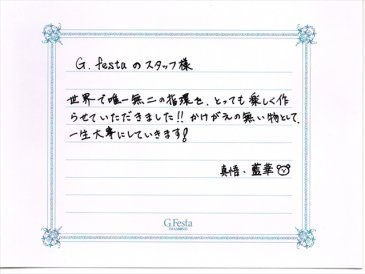 G.festaのスタッフ様
世界で唯一無二の指環を、とっても楽しく作
らせていただきました!! かけがえの無い物として、
一生大事にしていきます!
真悟・藍華
G.Festa